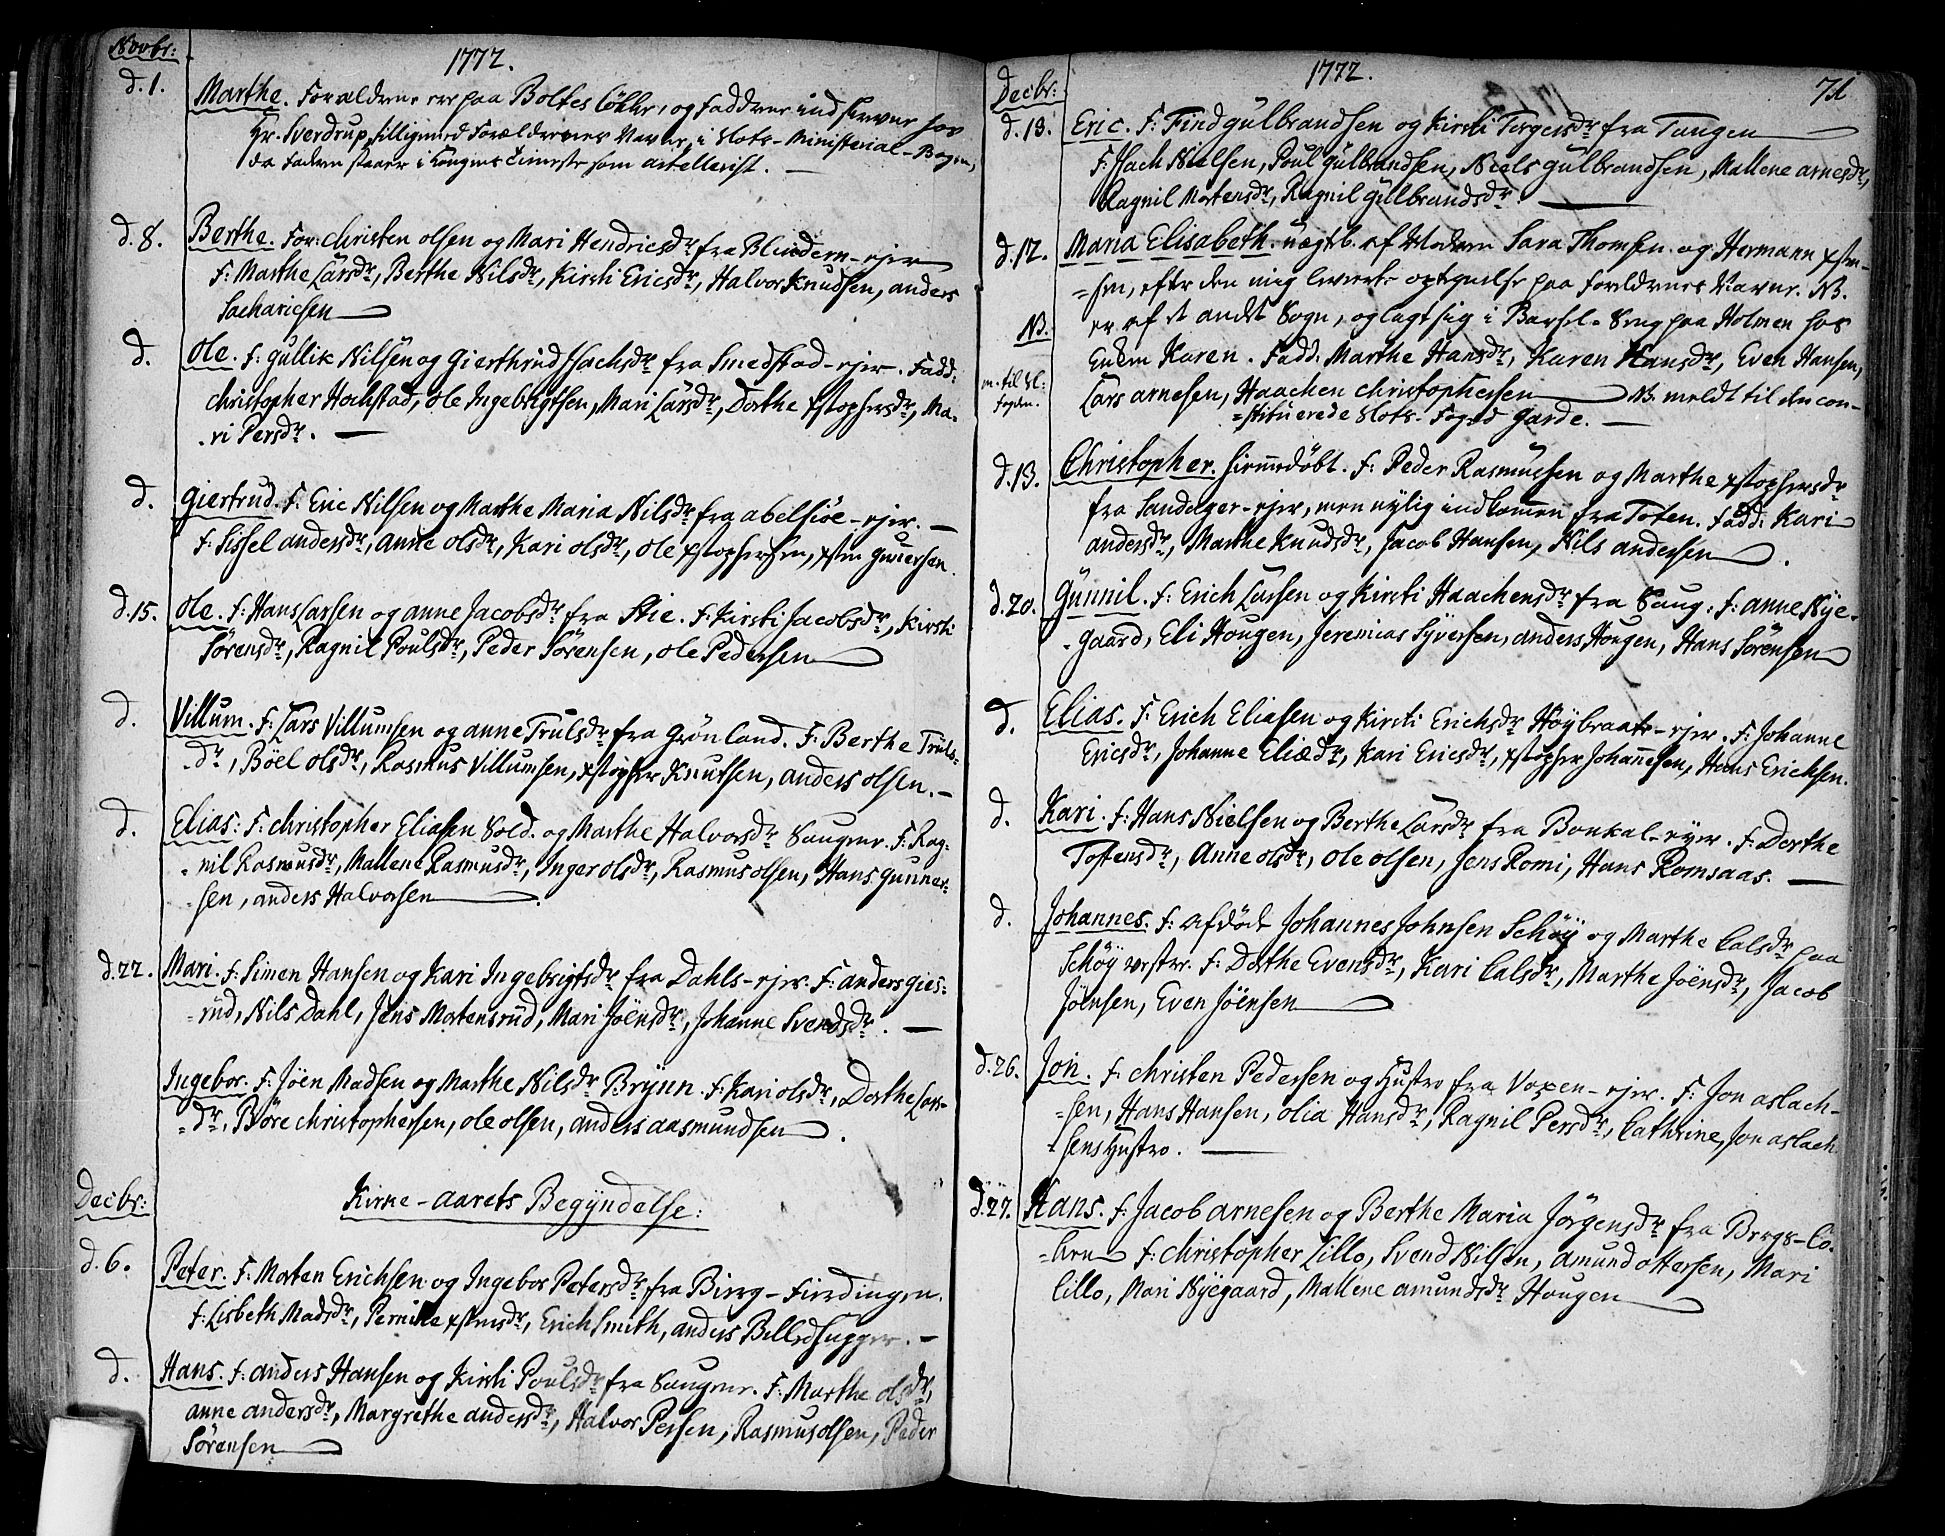 Novbr:
1772.
d. 1. Marthe. Forældrene ere paa Boltes Løkke, og fadderne indskrevne hos
Hr. Sverdrup, tilligemed Forældrenes Navne, i Slots-Ministerial-Bogen,
da faderen staaer i Kongens tieneste som artellerist.
d. 8. Berthe. For: christen olsen og Mari Hendricsdr fra Blindern-ejer
F: Marthe Larsdr, Berthe Nilsdr, Kirsti Ericsdr, Halvor Knudsen, anders
Sachariesen
d. Ole. F: gullik Nilsen og Gierthrud Isachsdr fra Smedstad-ejer. Fadd:
christopher Hochstad, ole Ingebrigtsen, Mari Larsdr, Dorthe xstophersdr, Ma-
ri Persdr.
d. Giertrud. F: Eric Nilsen og Marthe Maria Nilsdr fra abelsiøe-ejer.
F: Sissel andersdr, anne olsdr, Kari olsdr, ole xstophersen, xsten gunersen.
d. 15. Ole. F: Hans Larsen og anne Jacobsdr fra Stie. F: Kirsti Jacobsdr, Kirsti
Sørensdr, Ragnil Poulsdr, Peder Sørensen, ole Pedersen
d. Villum. F: Lars Villumsen og anne Trulsdr fra Grønland. F: Berthe Truls-
dr, Böel olsdr, Rasmus Villumsen, xstopher Knutsen, anders olsen.
d. Elias: F: christopher Eliasen Sold. og Marthe Halvorsdr Saugner. F: Rag-
nil Rasmusdr, Mallene Rasmusdr, Inger olsdr, Rasmus olsen, Hans gunner-
sen, anders Halvorsen
d. 22. Mari. F: Simen Hansen og Kari Ingebrigtsdr fra Dahls-ejer. F: anders gies-
rud, Nils Dahl, Jens Mortensrud, Mari Jöensdr, Johanne Svendsdr.
Ingebor. F: Jöen Madsen og Marthe Nilsdr Brynn. F: Kari olsdr, Dorthe Lars-
dr, Böre christophersen, ole olsen, anders aasmundsen.
Decbr:
Kirke-aarets Begyndelse:
d. 6. Peter. F: Morten Erichsen og Ingebor Petersdr fra Bierg-Fierdingen.
F: Lisbeth Madsdr, Pernille xstensdr, Erich Smith, anders Billedhugger.
d. Hans. F: anders Hansen og Kirsti Poulsdr fra Saugner. F: Marthe olsdr,
anne andersdr, Margrethe andersdr, Halvor Persen, Rasmus olsen, Peder
Sørensen
Decbr:
1772.
71
d. 13. Eric. F: Find gulbrandsen og Kirsti Torgersdr fra Tangen
F: Isach Nielsen, Poul gulbrandsen, Niels gulbrandsen, Mallene arnesdr,
Ragnil Mortensdr, Ragnil gulbrandsdr.
d. 17. Maria Elisabeth. uægtb. af Moderen Sara Thomsen. og Hermann xsten-
=sen, efter den mig leverte optegnelse paa foreldrenes Navne. NB.
NB. er af et andet Sogn, og lagt sig i Barsel-Seng paa Holmen hos
Enken Karen. Fadd: Marthe Hansdr, Karen Hansdr, Even Hansen,
m. til Sl:
fogden.
Lars arnesen, Haachen christophersen NB meldt til den con-
=stituerede Slots-Foged Garde.
d. 13. Christopher. hiemmedöbt. F: Peder Rasmussen og Marthe xstophersdr
fra Sandager-ejer, men nylig indkommen fra Toten. Fadd: Kari
andersdr, Marthe Knudsdr, Jacob Hansen, Nils andersen.
d. 20. Gunnil. F: Erich Larsen og Kirsti Haachensdr fra Saug: F: anne Nye-
gaard, Eli Hougen, Jeremias Syversen, anders Hougen, Hans Sørensen
d. Elias. F: Erich Eliasen og Kirsti Erichsdr Höybraate-ejer. F: Johanne
Ericsdr, Johanne Eliædr, Kari Ericsdr, xstopher Johannesen, Hans Erichsen.
d. Kari. F: Hans Nielsen og Berthe Larsdr fra Bonkal-ejer. F: Dorthe
Toftensdr, Anne olsdr, ole olsen, Jens Romi, Hans Romsaas.
d. Johannes. F: afdöde Johannes Johnsen Schöy og Marthe Calsdr paa
Schöy vestre. F: Dorthe Evensdr, Kari Calsdr, Marthe Jöensdr, Jacob
Jöensen, Even Jöensen
d. 26. Jon. F: christen Pedersen og Hustro fra Voxen-ejer. F: Jon aslach-
=sen, Hans Hansen, olia Hansdr, Ragnil Persdr, Cathrine, Jon aslach-
sens Hustro.
d. 27. Hans. F: Jacob arnesen og Berthe Maria Jörgensdr fra Bergs-Lö-
kken F: christopher Lillo, Svend Nilsen, amund ottersen, Mari
Lillo, Mari Nyegaard, Mallene amundsdr Hougen